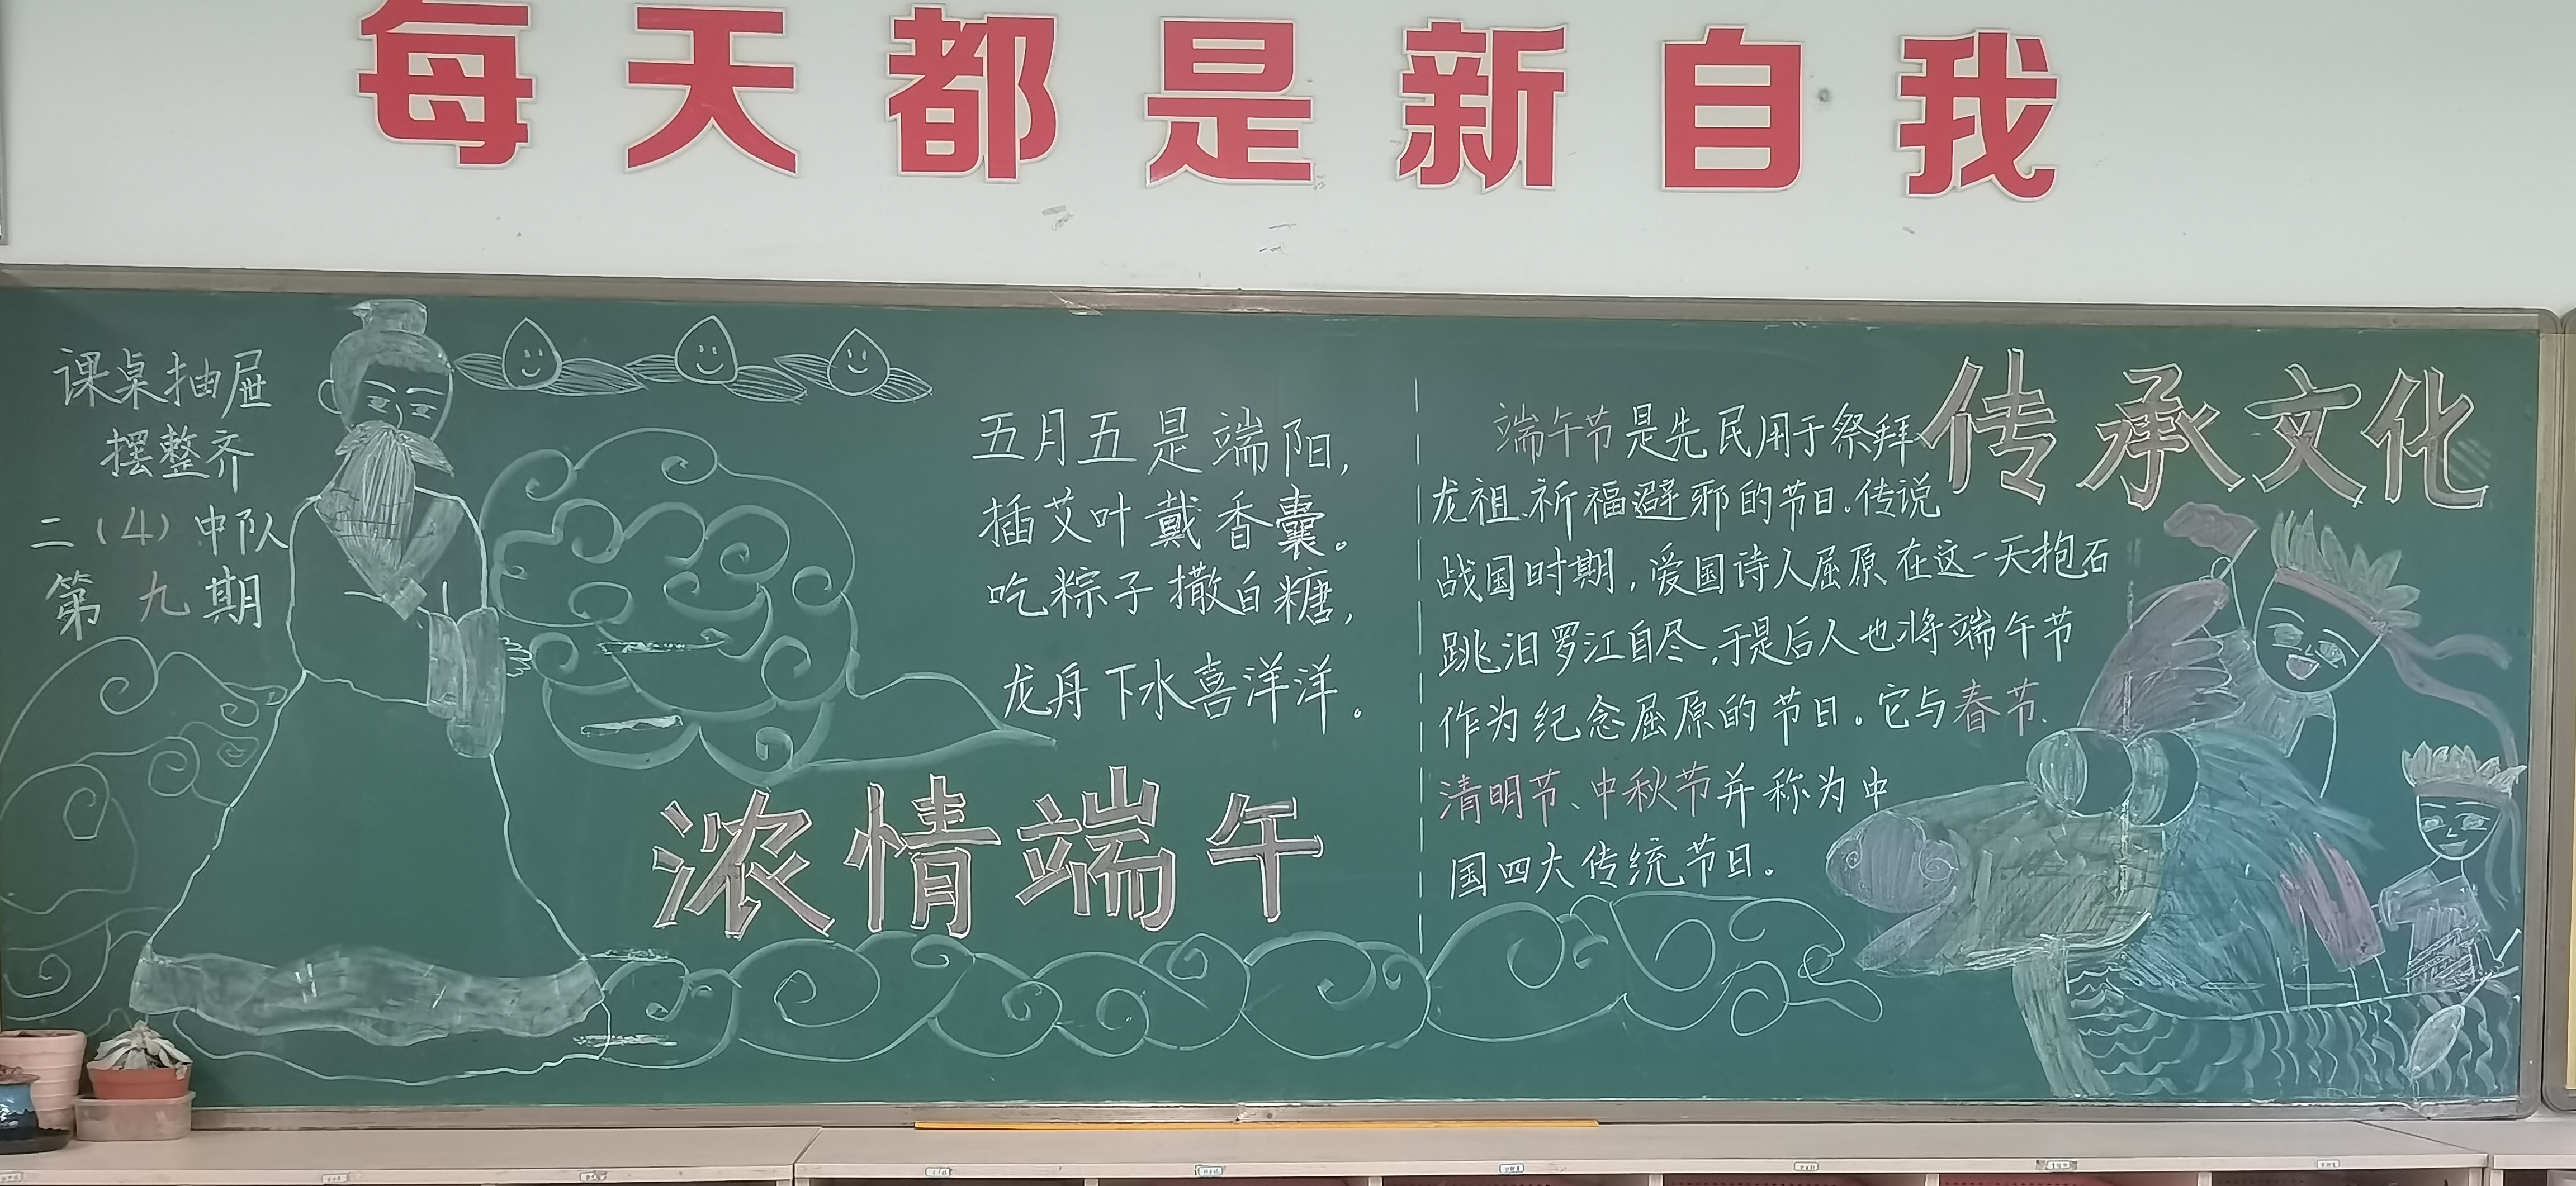 每天都是新自我
课桌抽屉
摆整齐
二(4)中队
第九期
五月五是端阳,
插艾叶戴香囊。
吃粽子撒白糖,
龙舟下水喜洋洋。
浓情端午
传承文化
端午节是先民用于祭拜
龙祖、祈福避邪的节日。传说
战国时期,爱国诗人屈原在这一天抱石
跳汨罗江自尽,于是后人也将端午节
作为纪念屈原的节日。它与春节、
清明节、中秋节并称为中
国四大传统节日。